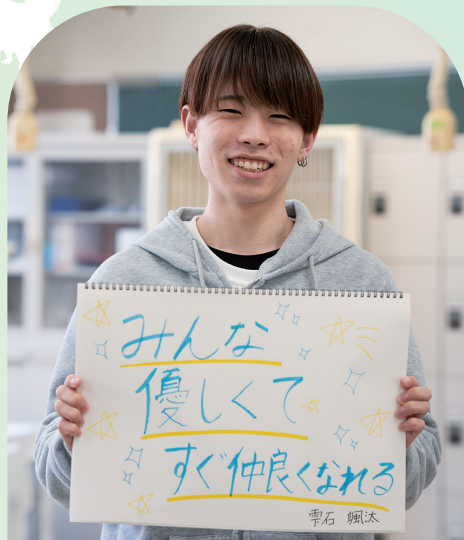 みんな
優しくて
すぐ仲良くなれる
雫石 颯汰